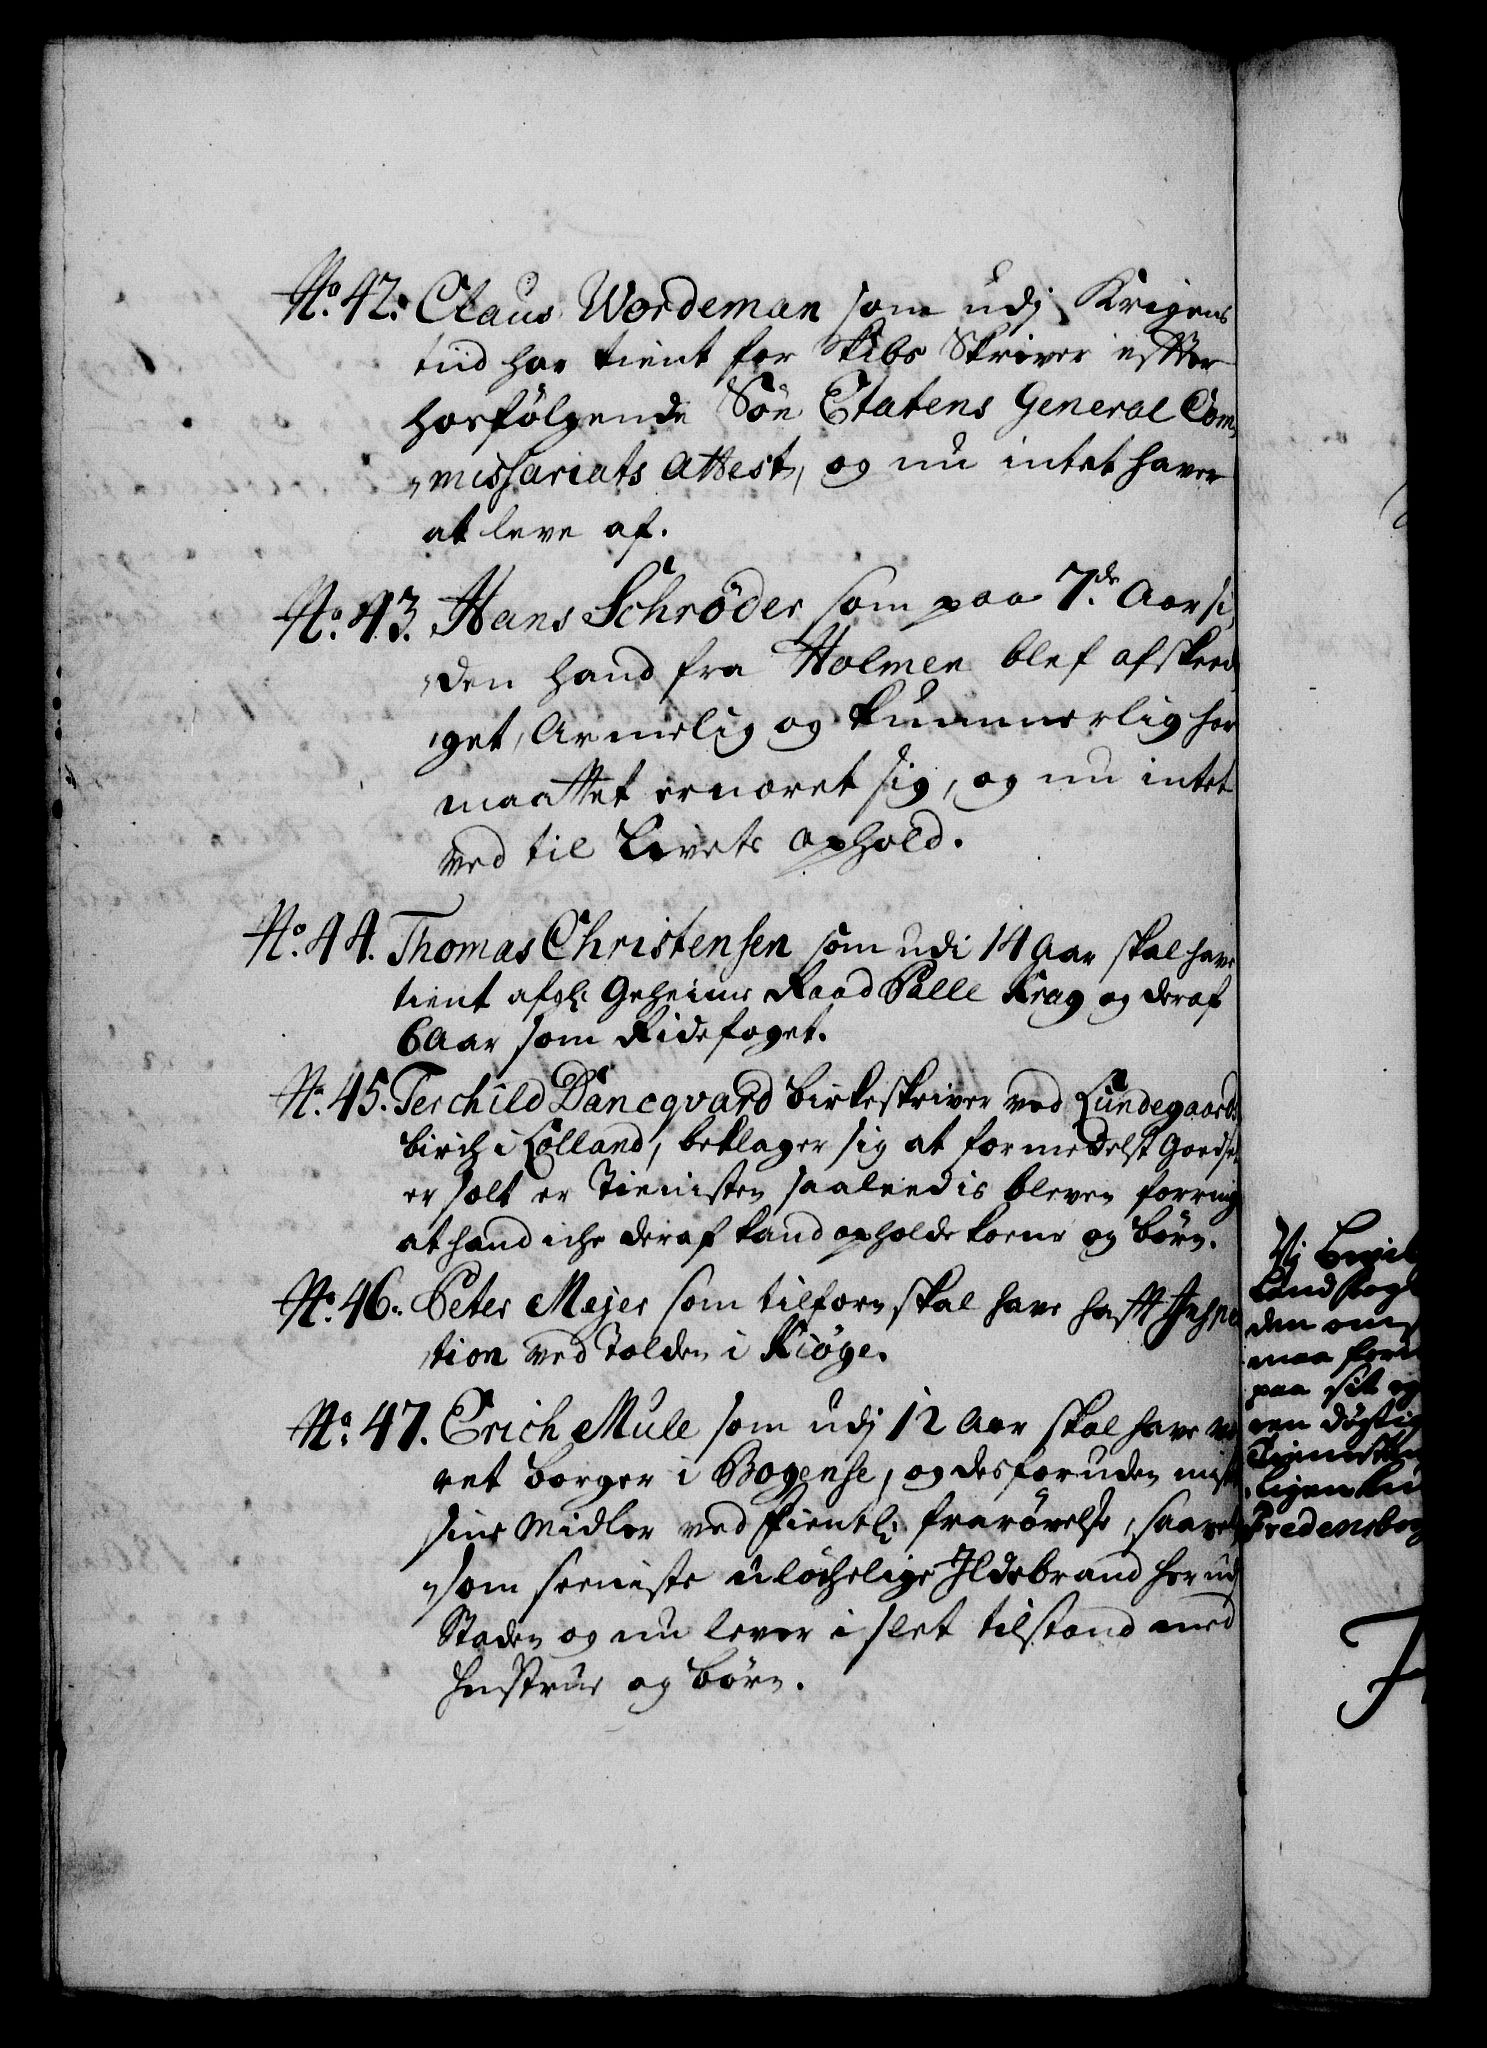 No. 42. Claus Wordeman som udj Krigens
tiid har tient for Skibs Skriver efter
hosfølgende Söe Etatens General Com-
missariats Attest, og nu intet haver
at leve af.
No. 43. Hans Schrøder som paa 7de Aar si,
den hand fra Holmen blef afskeed,
get, Armelig og kummerlig har
maattet ernæret sig, og nu intet
ved til Livets ophold.
No. 44. Thomas Christensen som udi 14 Aar skal have
tient afgl: Geheime Raad Palle Krag og deraf
6 Aar som Ridefoget.
No. 45. Terchild Dancqvard birkeskriver ved Lundegaards
birch i Lolland, beklager sig at formedelst Goedset
er solt er Tienisten saaledis bleven forring
at hand iche deraf kand opholde Kone og børn.
No. 46. Peter Mejer som tilforn skal have hafft Inspec
tion ved Tolden i Kiøge.
No. 47. Erich Mule som udj 12 Aar skal have væ
ret borger i Bogense, og desforuden mist
sine Midler ved fientl: frarøvelse, saavel
som seeniste ulöchelige Ildebrand her ud
Staden og nu lever i slet tilstand med
Hustrue og børn.
Vj
Landfog
den om
maa for
paa sit og
een døgtig
Tienisten
ligen
Fredensborg
F